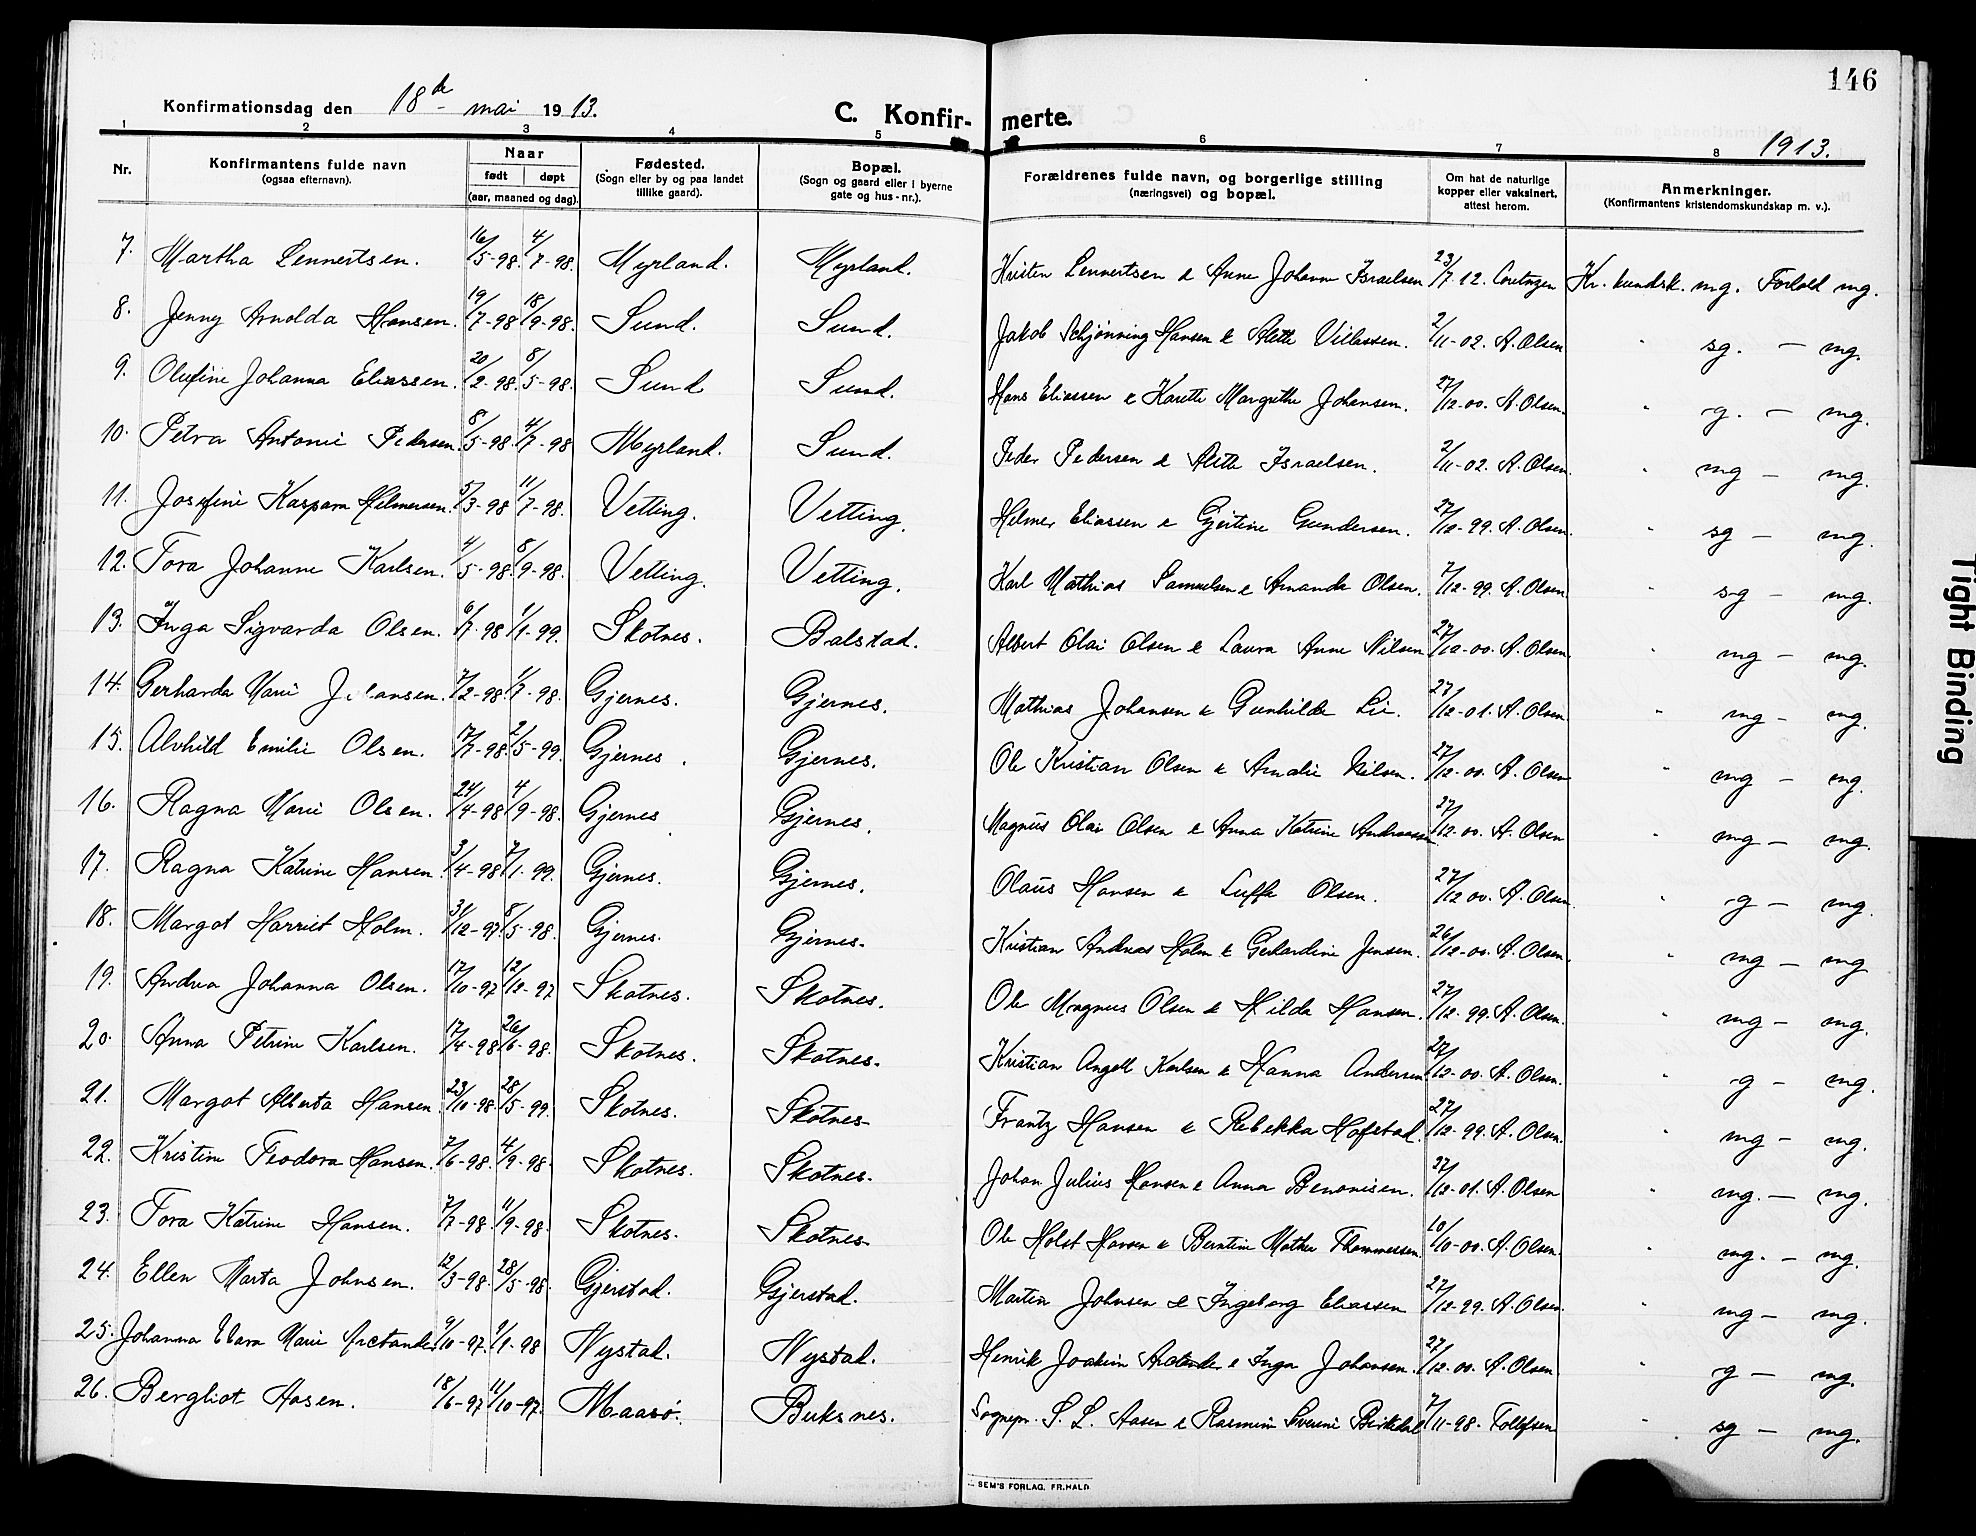 146
Konfirmationsdag den 18de mai 1913. C. Konfirmerte. 1913.
1 2 3 4 5 6 7 8
Nr. Konfirmantens fulde navn (ogsaa efternavn). Naar født døpt (aar, maaned og dag). Fødested. (Sogn eller by og paa landet tillike gaard). Bopæl. (Sogn og gaard eller i byerne gate og hus-nr.). Forældrenes fulde navn, og borgerlige stilling (næringsvei) og bopæl. Om hat de naturlige kopper eller vaksinert, attest herom. Anmerkninger. (Konfirmantens kristendomskundskap m. v.).
7. Martha Lennertsen. 16/5-98. 4/7-98. Myrland. Myrland. Kristen Lennertsen & Anne Johanne Israelsen 23/7.12. Kr. kundsk. mg. Forhold mg.
8. Jenny Arnolda Hansen. 19/7-98 18/9-98. Sund. Sund. Jakob Schjønning Hansen & Alette Villassen. 2/11-02. A. Olsen " sg. - mg.
9. Olufine Johanna Eliassen. 20/2-98. 8/5-98. Sund Sund. Hans Eliassen & Karette Margrethe Johansen. 27/12-00. A. Olsen. " g. - mg.
10. Petra Antonie Pedersen. 8/5-98. 4/7-98 Myrland. Sund. Peder Pedersen & Alette Israelsen. 2/11-02. A. Olsen. " mg - mg.
11. Josefine Kaspara Hilmersen. 5/3-98 11/7-98. Vetting. Vetting. Helmer Eliassen & Gjertine Gundersen. 27/12-99. A. Olsen. " sg - mg.
12. Tora Johanne Karlsen. 4/5-98. 8/9-98. Vetting. Vetting. Karl Mathias Samuelsen & Amanda Olsen. 7/12-99. A. Olsen. " sg - mg.
13. Inga Sigvarda Olsen. 6/7-98 1/1-99. Skotnes. Balstad. Albert Olai Olsen & Laura Anne Nilsen 27/12-00. A. Olsen. " mg - mg.
14. Gerharda Marie Johansen. 7/2-98. 1/7-98. Gjernes. Gjernes. Mathias Johansen & Gunhilde Lie. 27/12-01. A. Olsen. " mg - mg.
15. Alvhild Emilie Olsen. 17/7-98. 2/5-99. Gjernes. Gjernes. Ole Kristian Olsen & Amalie Nilsen. 27/12-00. A. Olsen " mg - mg.
16. Ragna Marie Olsen. 24/4-98 4/9-98. Gjernes. Gjernes. Magnus Olai Olsen & Anna Katrine Andreassen 27/12.00. A. Olsen " mg - mg.
17. Ragna Katrine Hansen. 3/4-98 7/1-99. Gjernes. Gjernes. Olaus Hansen & Olsen. 27/12 00. A. Olsen. " g - mg.
18. Margot Harriet Holm. 31/12-97. 8/5-98. Gjernes. Gjernes. Kristian Andreas Holm & Gerhardine Jensen. 26/12-00. A. Olsen. " mg - mg
19. Andrea Johanna Olsen. 17/10-97 12/12-97 Skotnes. Skotnes. Ole Magnus Olsen & Hilda Hansen. 27/12-99. A. Olsen. " mg - mg.
20. Anna Petrine Karlsen. 17/4-98 26/6-98. Skotnes. Skotnes. Kristian Angell Karlsen & Hanna Andersen 27/12-00. A. Olsen. " g - mg.
21. Margot Alberta Hansen. 23/10-98. 28/5-99. Skotnes. Skotnes. Frantz Hansen & Rebekka Hofstad. 27/12-99. A. Olsen. " mg - mg.
22. Kristine Teodora Hansen. 7/6-98. 4/9-98. Skotnes. Skotnes. Johan Julius Hansen & Anna Benonisen. 27/12-01. A. Olsen " mg. - mg.
23. Tora Katrine Hansen. 7/7-98. 11/9-98. Skotnes. Skotnes. Ole Holst Hansen & Berntine Mathea Thommessen 10/10-00. A. Olsen. " mg. - mg.
24. Ellen Marta Johnsen. 12/3-98. 28/5-98. Gjerstad. Gjerstad. Martin Johnsen & Ingeborg Eliassen 27/12-99. A. Olsen. " mg - mg.
25. Johanna Klara Marie Arctander 9/10-97. 9/1-98 Nystad. Nystad. Henrik Joakim Arctander & Inga Johansen. 27/12.00. A. Olsen. " g - mg.
26. Bergliot Aasen. 18/6-97 11/10-97. Maasø. Buksnes. Sognepr. S. L. Aasen & Rasmine Severine Birkedal 7/11-98. Tollefsen " sg - mg.
SEM'S FORLAG, FR.HALD
Tight Binding